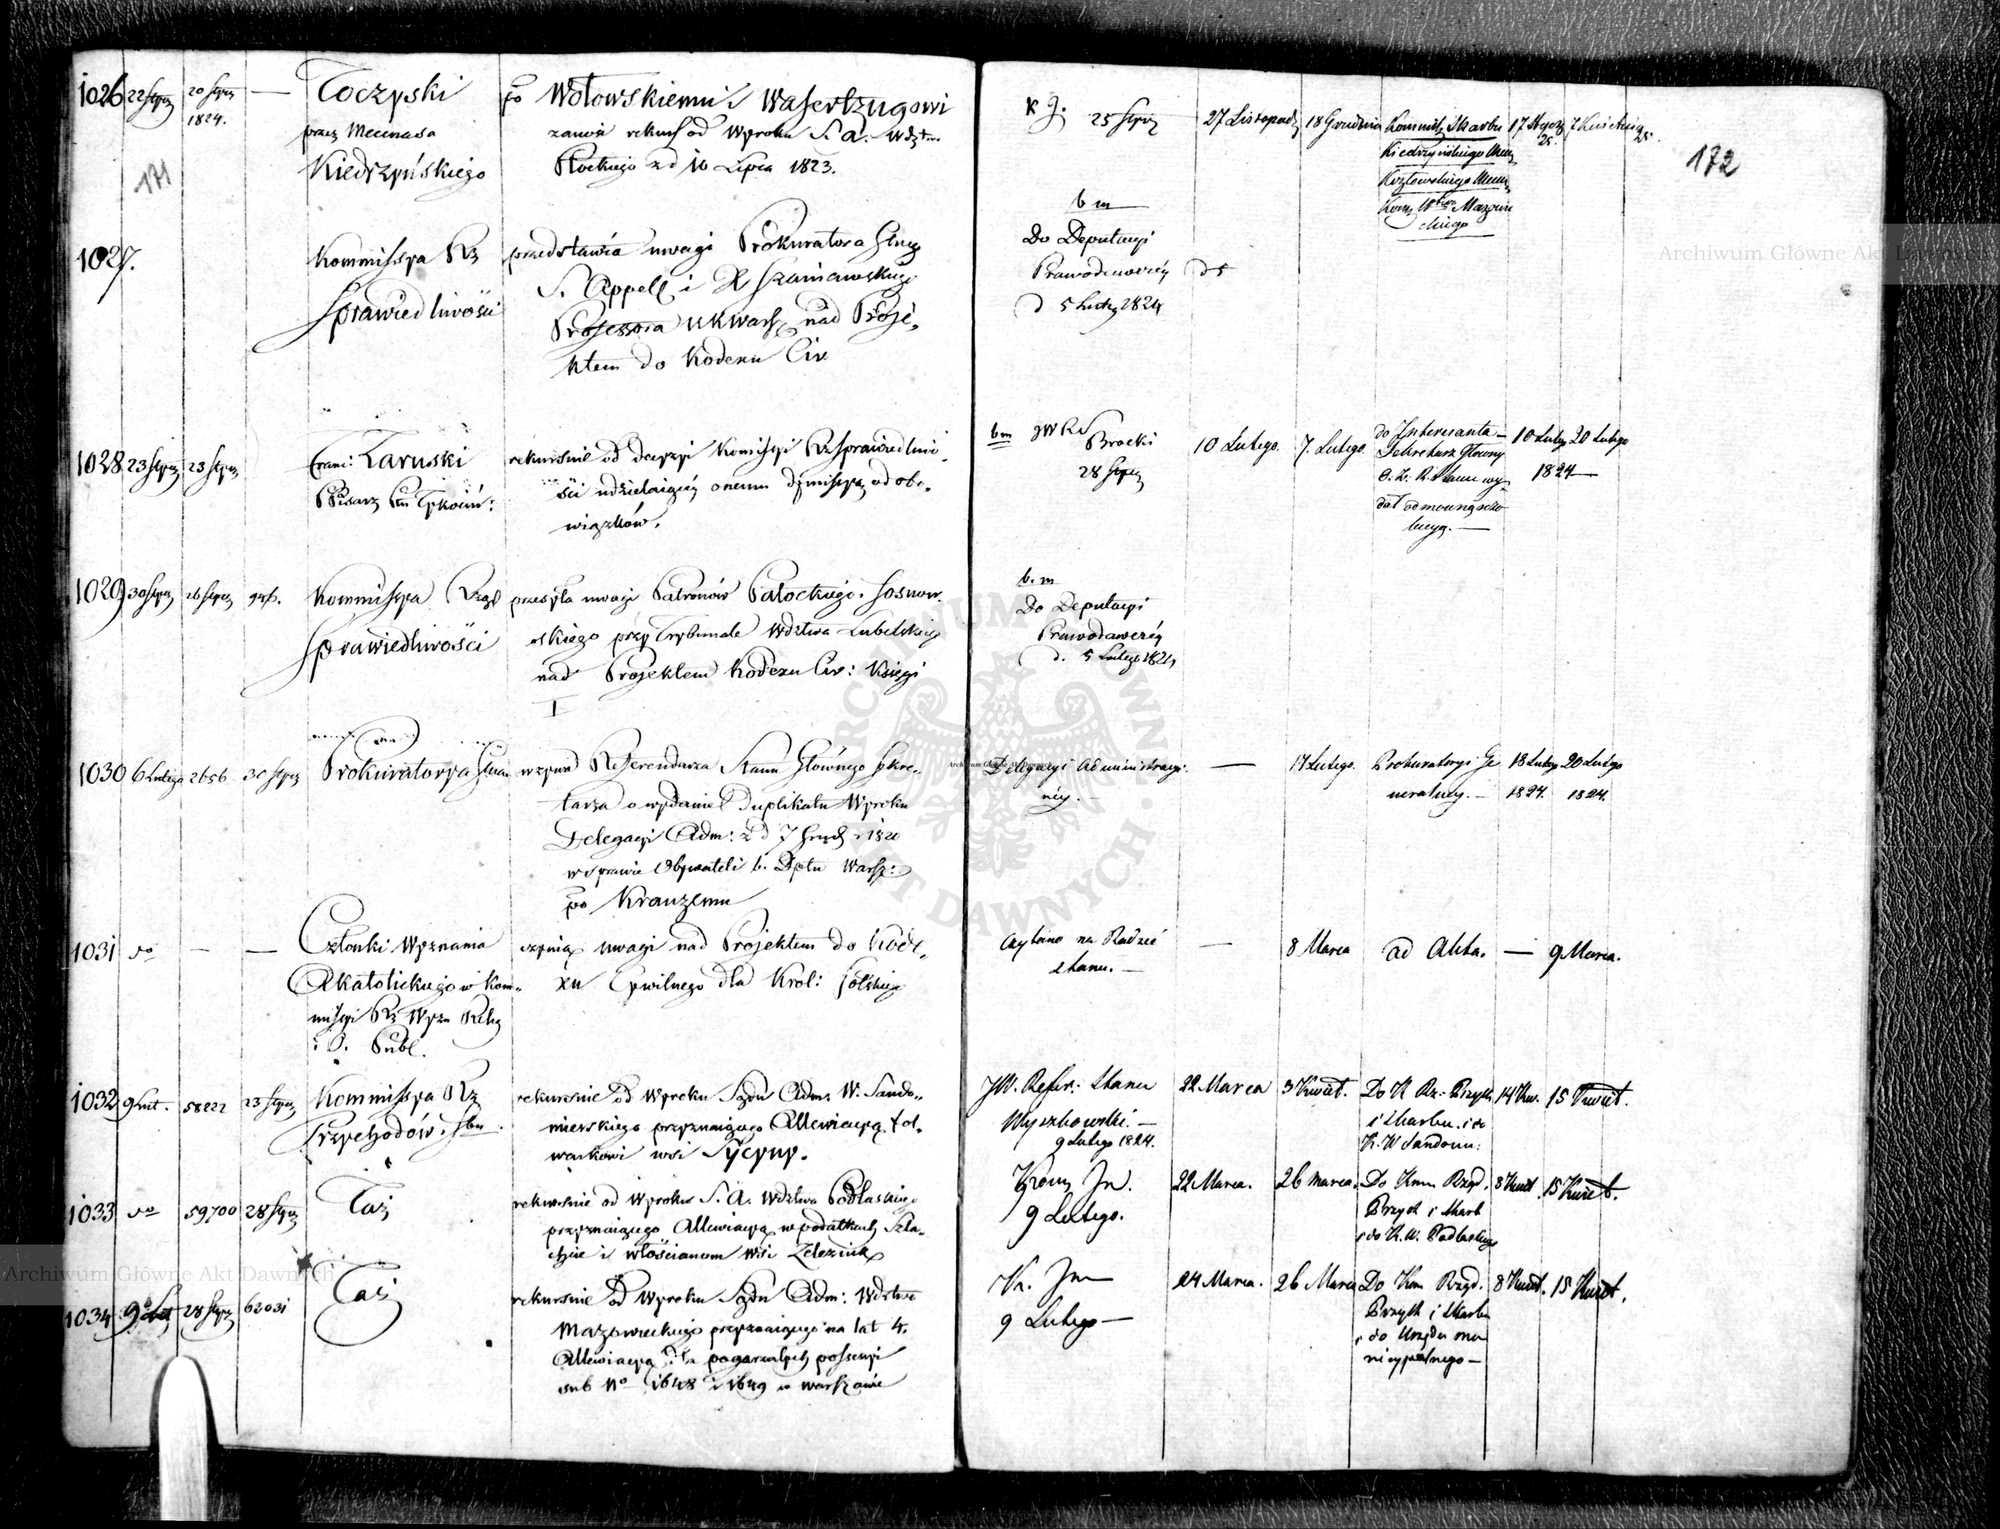 1026 22 Stycz 20 Stycz 1824. — Toczyski
przez Mecenasa
Kiedrzyńskiego
po Wołowskiemu i Wasertzugowi
zanosi rekurs od Wyroku S. A. Wdztwa
Płockiego z d 10 Lipca 1823.
K J. 25 Stycz
27 Listopada 18 Grudnia
Kommiss Skarbu
Kiedrzyńskiego Mecen
Kozłowskiego Mecen
Kom Wtwa Mazowie
ckiego
17 Stycz 25. 7 Kwietnia 25.
171
172
1027. Kommissya Rz
Sprawiedliwości
przedstawia uwagi Prokuratora
S. Appell i X Szaniawskiego
Professora U K Warsz nad Proje-
ktem do Kodexu Civ
b m
Do Deputacyi
Prawodawczéy
d 5 Lutego 1824
1028 23 Stycz 23 Stycz
Franc: Zaruski
Pisarz Ptu Tykociń:
rekursuie od decyzyi Komissyi Rz Sprawiedliwo-
ści udzielaiącéy onemu dymissyą od obo-
wiązków.
bm JW R
Brocki
28 Stycz
10 Lutego. 7. Lutego.
do Interesanta —
Sekretarz Główny
R. Stanu wy-
dał odmowną rezo-
lucyą. —
10 Lutego 20 Lutego
1824 —
1029 30 Stycz 26 Stycz
Kommissya Rząd
Sprawiedliwości
przesyła uwagi Patronów Pałockiego i Sosnow-
skiego przy Trybunale Wdztwa Lubelskiego
nad Projektem Kodexu Civ: Księgi
I
b. m
Do Deputacyi
Prawodawczéy
d. 5 Lutego 1824
1030 6 Lutego 2656 30 Stycz
Prokuratorya
wzywa Referendarza Stanu Głównego Sekre-
tarza o wydanie Duplikatu Wyroku
Delegacyi Adm: z d 7 Grud r 1820
w sprawie Obywateli b. Dptu Warsz:
po Kranzemu
Delegacyi Administracyi-
néy. —
— 17 Lutego.
Prokuratoryi Je
neralnéy. —
18 Lutego 20 Lutego
1824. 1824.
1031 do — —
Członki Wyznania
Akatolickiego w Kom-
missyi Rz Wyzn Relig
i O. Publ.
czynią uwagi nad Projektem do Kode-
xu Cywilnego dla Król: Polskiego
Czytano na Radzie
Stanu. —
— 8 Marca ad Akta. — 9 Marca.
1032 9 Lut. 58222 23 Stycz
Kommissya Rz
Przychodów i Sbu.
rekursuie od Wyroku Sądu Adm. W. Sando-
mierskiego przyznaiącego Allewiacyą fol-
warkowi wsi Sycyny.
JW. Refer: Stanu
Wyszkowski. —
9 Lutego 1824.
22 Marca 3 Kwiet.
Do K Rz. Przych
i Skarbu. i do
K. W Sandom:
14 Kw. 15 Kwiet.
1033 do 59700 28 Stycz Taż
rekursuie od Wyroku S. A. Wdztwa Podlaskiego
przyznaiącego Allewiacyą w podatkach Szla-
chcie i włościanom wsi Zelezniki
9 Lutego.
22 Marca. 26 marca.
Do Kom Rząd.
Przych i Skarb
i do K. W. Podlaskiego
8 Kwiet 15 Kwiet.
1034 9 Lut 28 Stycz 62031 Taż
rekursuie od Wyroku Sądu Adm: Wdztwa
Mazowieckiego przyznaiącego na lat 4.
Allewiacyą dla pogorzałych possessyi
sub No 1648 i 1649 w Warszawie
9 Lutego —
24 Marca. 26 Marca
Do Kom Rząd.
Przych i Skarbu
i do Urzędu mu
nicypalnego —
8 Kwiet. 15 Kwiet.
Archiwum Główne Akt Dawnych
Archiwum Główne Akt Dawnych
Archiwum Główne Akt Dawnych
ARCHIWUM GŁÓWNE AKT DAWNYCH